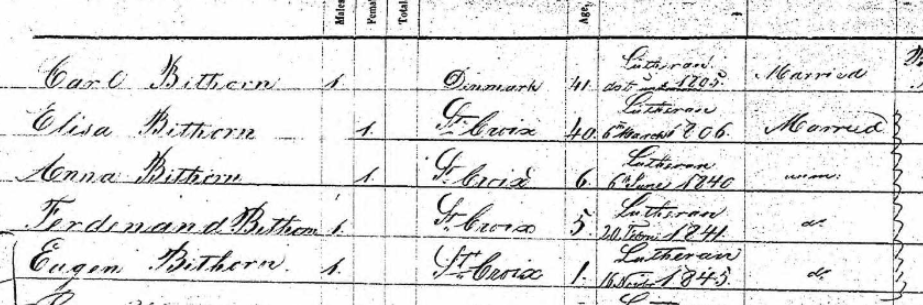 Males Total Age,
Carl Bithorn 1. Dinmark 41. Lutheran 1805. Married
Elisa Bithorn 1. St. Croix 40. Lutheran 6th March 1806. Married
Anna Bithorn 1. St. Croix 6. Lutheran 6th June 1840 unm:
Ferdinand Bithorn 1. St. Croix 5. Lutheran 1841. do
Eugen Bithorn. 1. St. Croix 1. Lutheran 1845. do